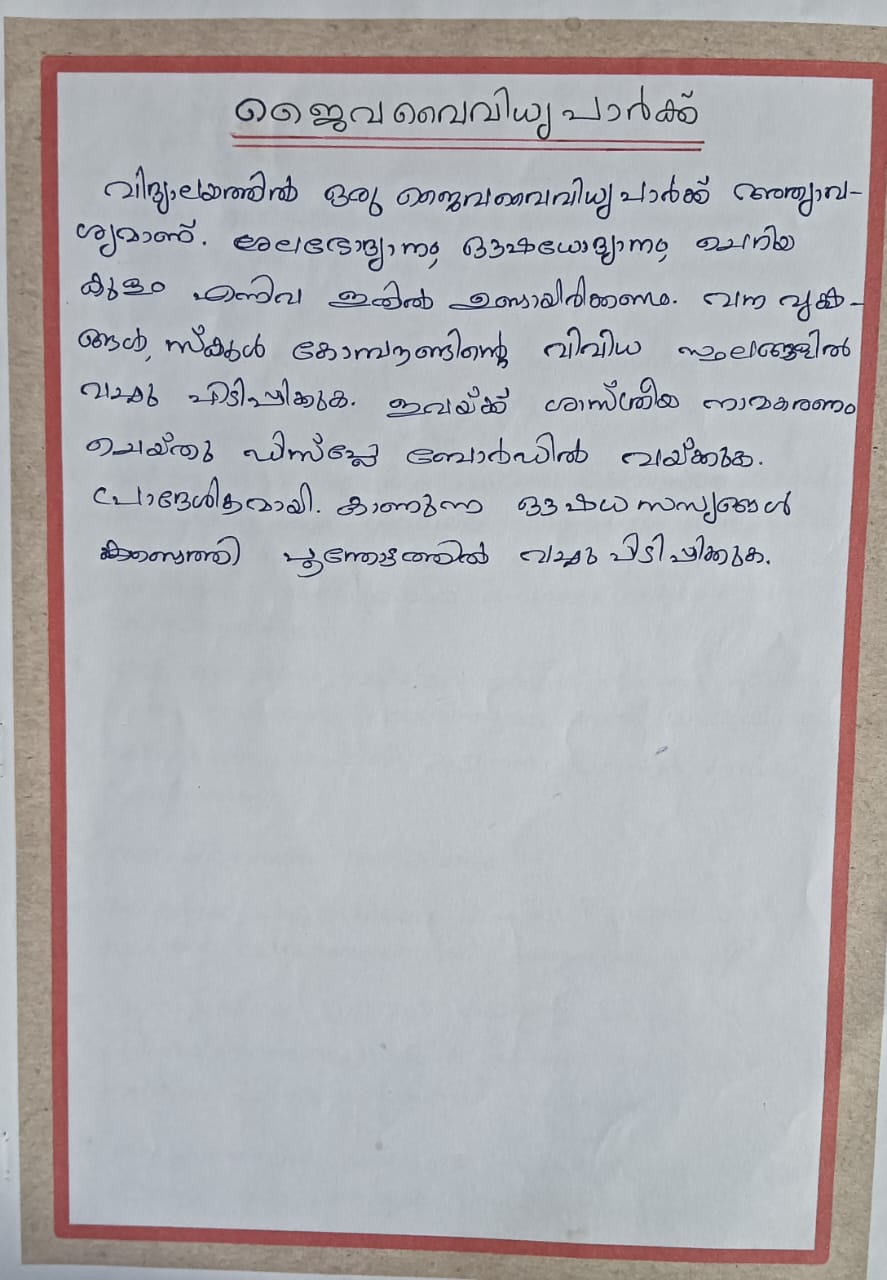 ജൈവവൈവിധ്യപാർക്ക്
വിദ്യാലയത്തിൽ ഒരു ജൈവവൈവിധ്യപാർക്ക് അത്യാവ-
ശ്യമാണ്. ശലഭോദ്യാനം, ഔഷധോദ്യാനം, ചെറിയ
കുളം എന്നിവ ഇതിൽ ഉണ്ടായിരിക്കണം. വന വൃക്ഷ-
ങ്ങൾ, സ്കൂൾ കോമ്പൗണ്ടിന്റെ വിവിധ സ്ഥലങ്ങളിൽ
വച്ചു പിടിപ്പിക്കുക. ഇവയ്ക്ക് ശാസ്ത്രീയ നാമകരണം
ചെയ്തു ഡിസ്പ്ലേ ബോർഡിൽ വയ്ക്കുക.
പ്രാദേശികമായി. കാണുന്ന ഔഷധ സസ്യങ്ങൾ
കണ്ടെത്തി പൂന്തോട്ടത്തിൽ വച്ചു പിടിപ്പിക്കുക.